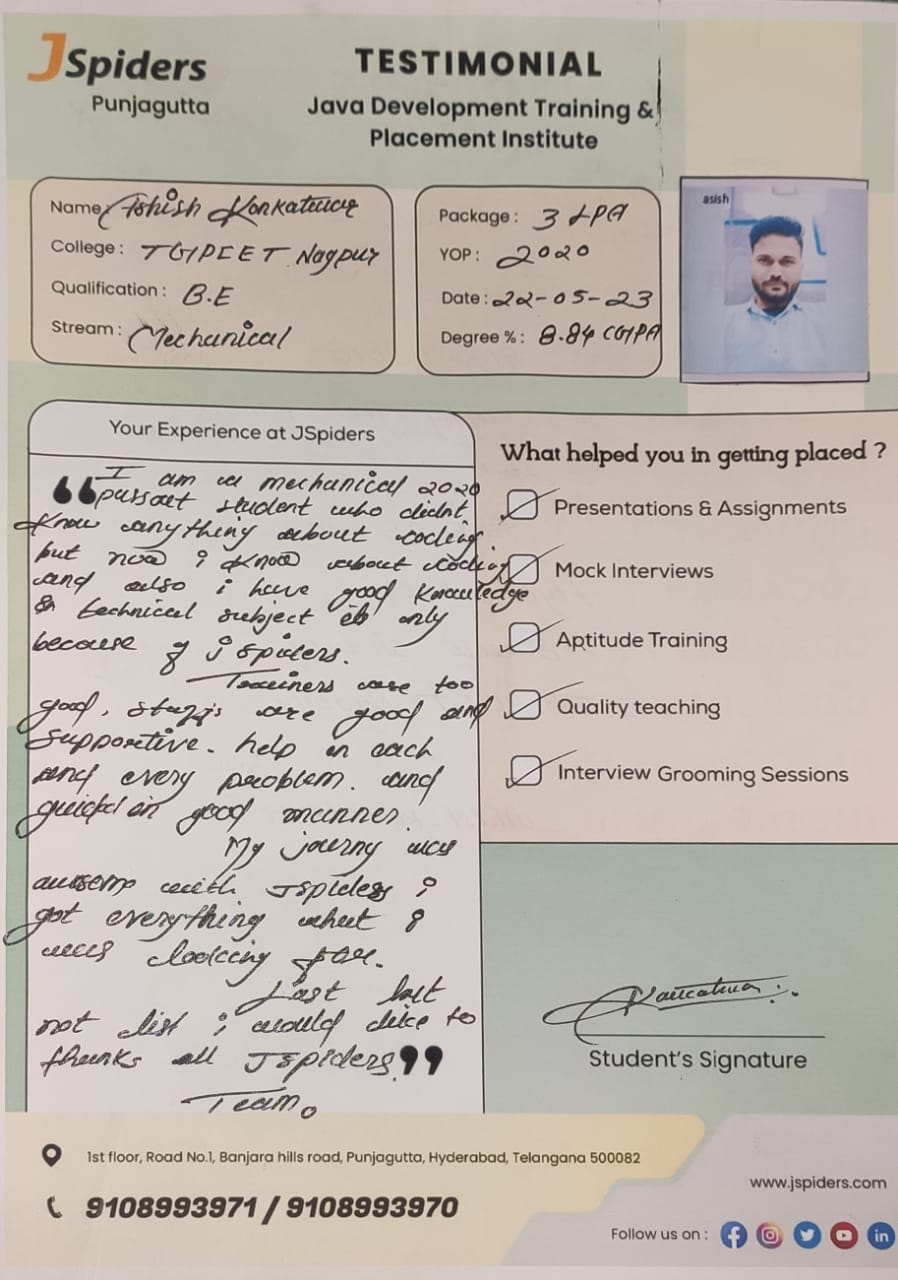 JSpiders
Punjagutta
TESTIMONIAL
Java Development Training &
Placement Institute
Name Ashish Konkatwar
College : TGIPCET Nagpur
Qualification : B.E
Stream : Mechanical
Package : 3 LPA
YOP : 2020
Date : 22-05-23
Degree % : 8.84 CGPA
asish
Your Experience at JSpiders
“I am a mechanical 2020
passout student who didnt
know anything about coding
but now i know about coding
and also i have good knowledge
technical subject only
because of J spiders.
Trainers are too
good, staffs are good and
supportive. help in each
and every problem. and
good manner.
My journy was
awsem with Jspiders i
got everything what i
was looking for.
Last but
not list i would like to
thanks all JSpiders”
Team.
What helped you in getting placed ?
Presentations & Assignments
Mock Interviews
Aptitude Training
Quality teaching
Interview Grooming Sessions
Student's Signature
1st floor, Road No.1, Banjara hills road, Punjagutta, Hyderabad, Telangana 500082
9108993971 / 9108993970
www.jspiders.com
Follow us on :